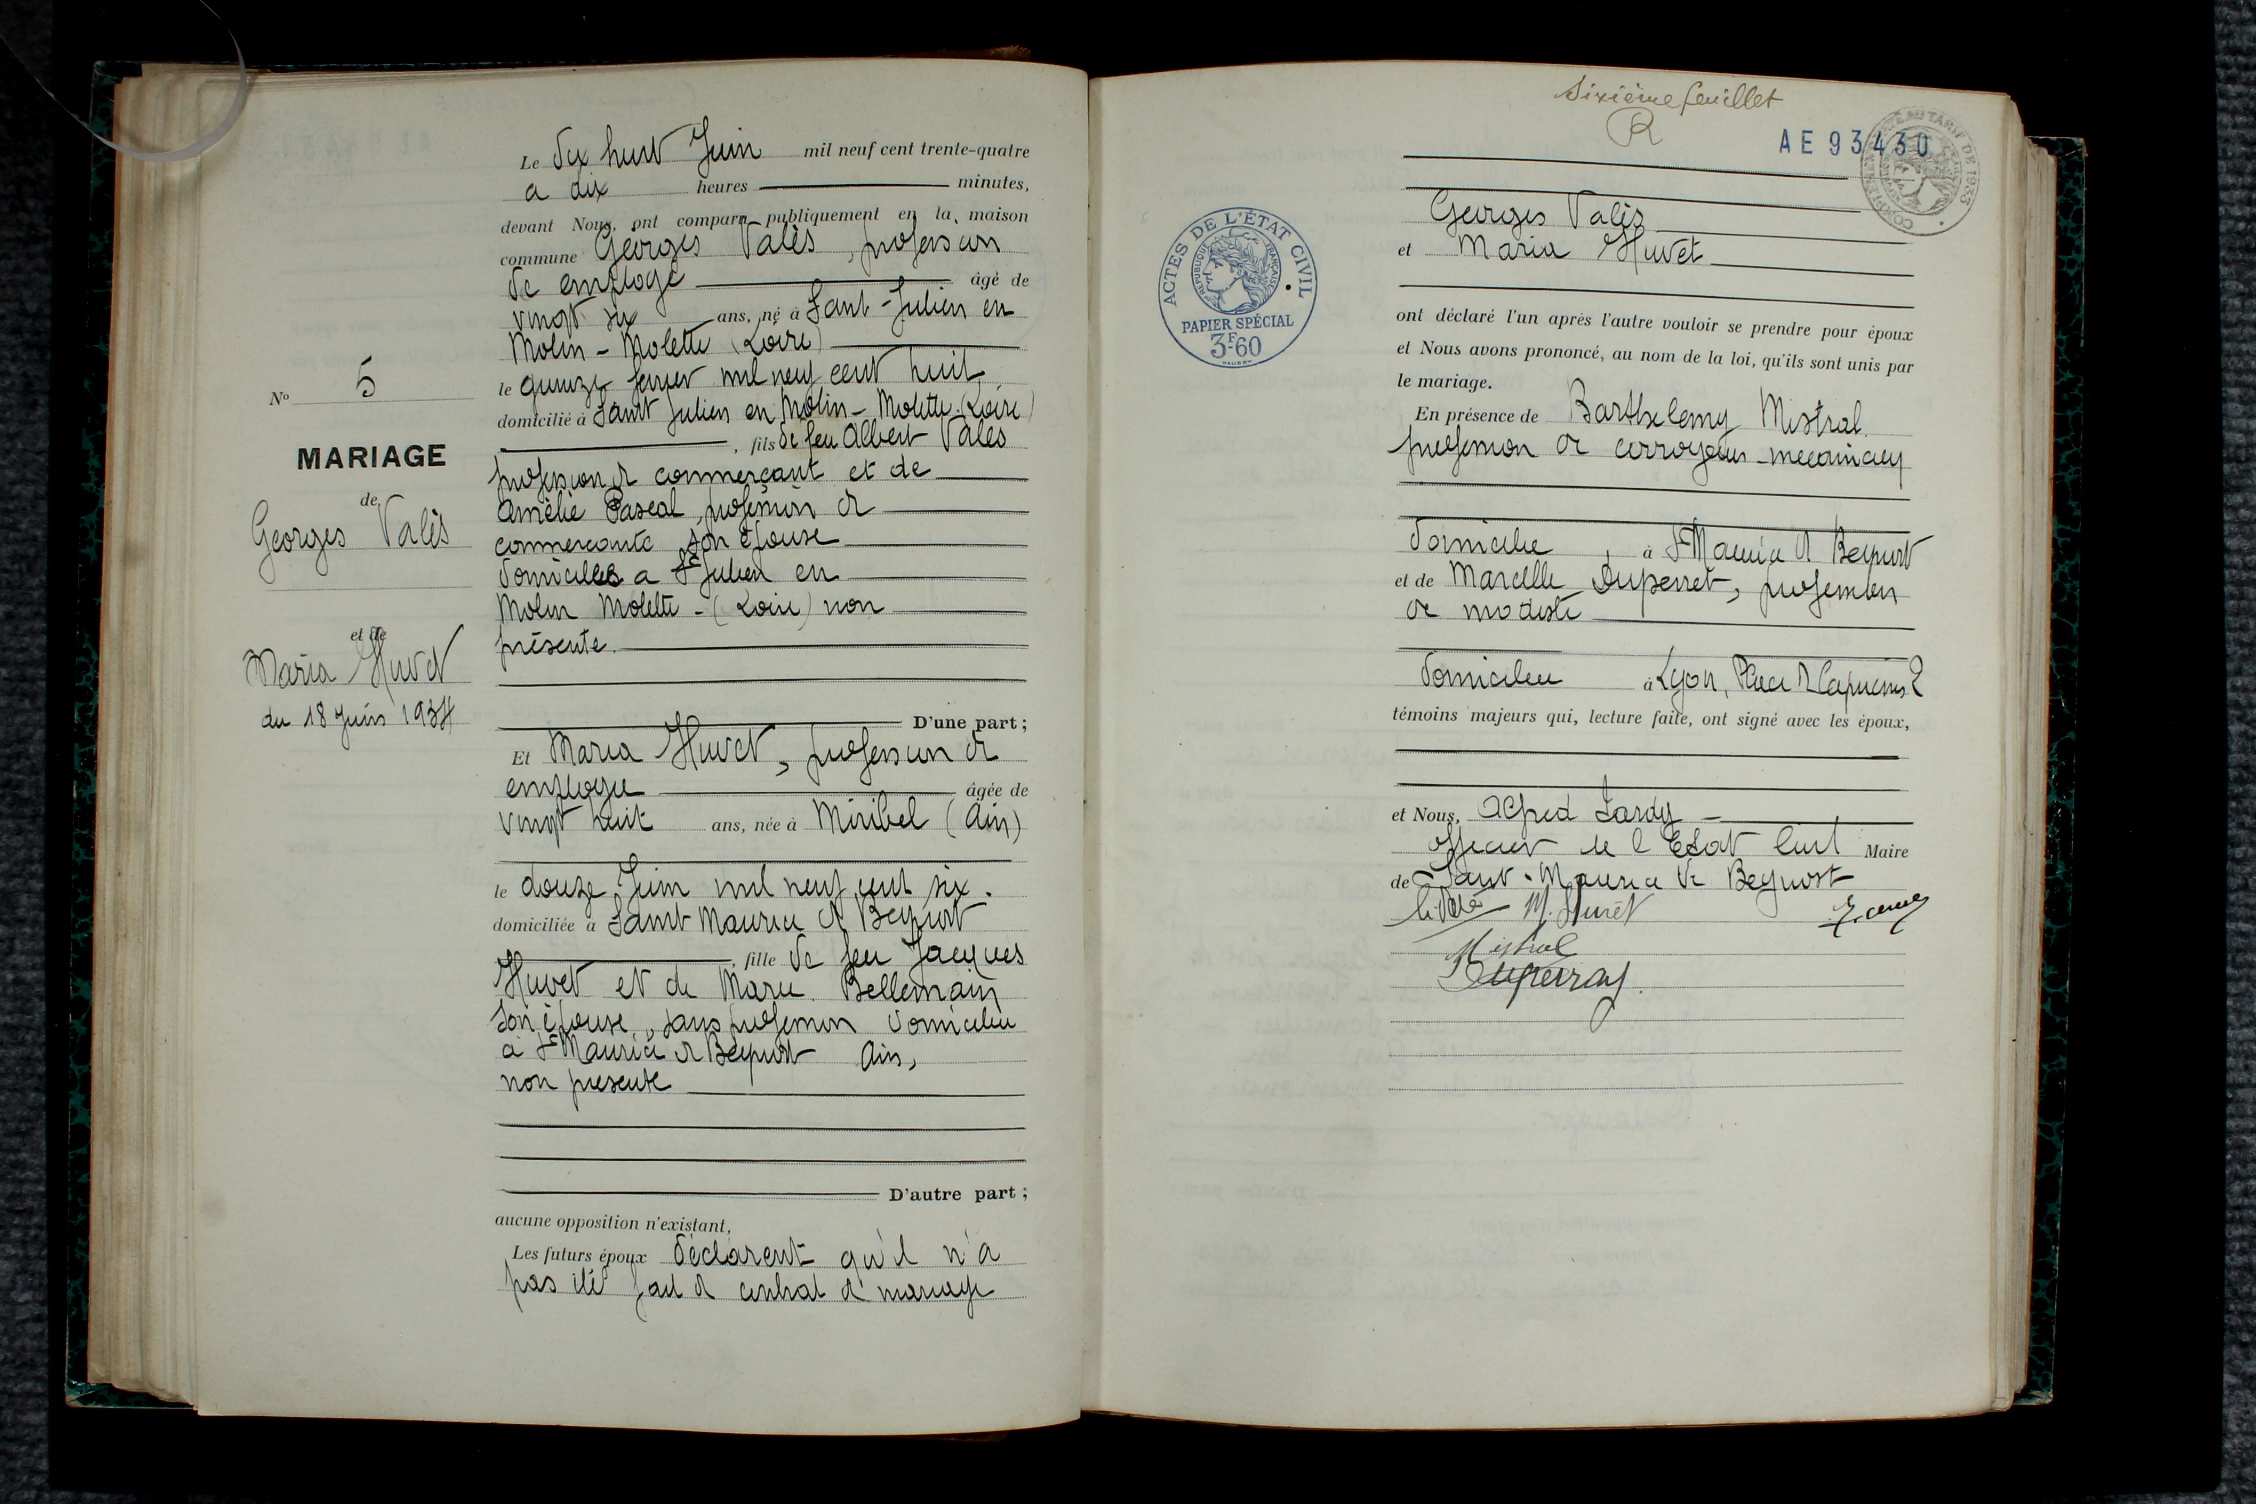 N° 5
MARIAGE
de
Georges Valès
et de
Maria Huvet
du 18 Juin 1934
Le Dix huit Juin mil neuf cent trente-quatre
a dix heures minutes,
devant Nous, ont comparu publiquement en la maison
commune Georges Valès, profession
de employé âgé de
vingt six ans, né à Saint-Julien en
Molin-Molette (Loire)
le quinze fevrier mil neuf cent huit
domicilié à Saint Julien en Molin-Molette (Loire)
, fils de feu Albert Valès
profession de commerçant et de
Amélie Pascal, profession de
commercante son épouse
domiciliés a St Julien en
Molin Molette - (Loire) non
présente.
D'une part ;
Et Maria Huvet, profession de
employée âgée de
vingt huit ans, née à Miribel (Ain)
le douze Juin mil neuf cent six.
domiciliée à Saint Maurice de Beynost
, fille de feu Jacques
Huvet et de Marie Bellemain
son épouse, sans profession domiciliée
à St Maurice de Beynost Ain,
non presente
D'autre part ;
aucune opposition n'existant,
Les futurs époux déclarent qu'il n'a
pas été fait de contrat de mariage
Sixième feuillet
AE 93430
COMPLEMENT AU TARIF DE 1933
ACTES DE L'ÉTAT CIVIL
RÉPUBLIQUE FRANÇAISE
PAPIER SPÉCIAL
3F60
Georges Valès
et Maria Huvet
ont déclaré l'un après l'autre vouloir se prendre pour époux
et Nous avons prononcé, au nom de la loi, qu'ils sont unis par
le mariage.
En présence de Barthelemy Mistral
profession de corroyeur-mecanicien
domicilié à St Maurice de Beynost
et de Marcelle Duperret, profession
de modiste
domiciliée à Lyon, Place des Capucins 2
témoins majeurs qui, lecture faite, ont signé avec les époux,
et Nous, Alfred Sardy
officier de l'Etat Civil Maire
de Saint-Maurice de Beynost
M. Huvet
Mistral
Duperray